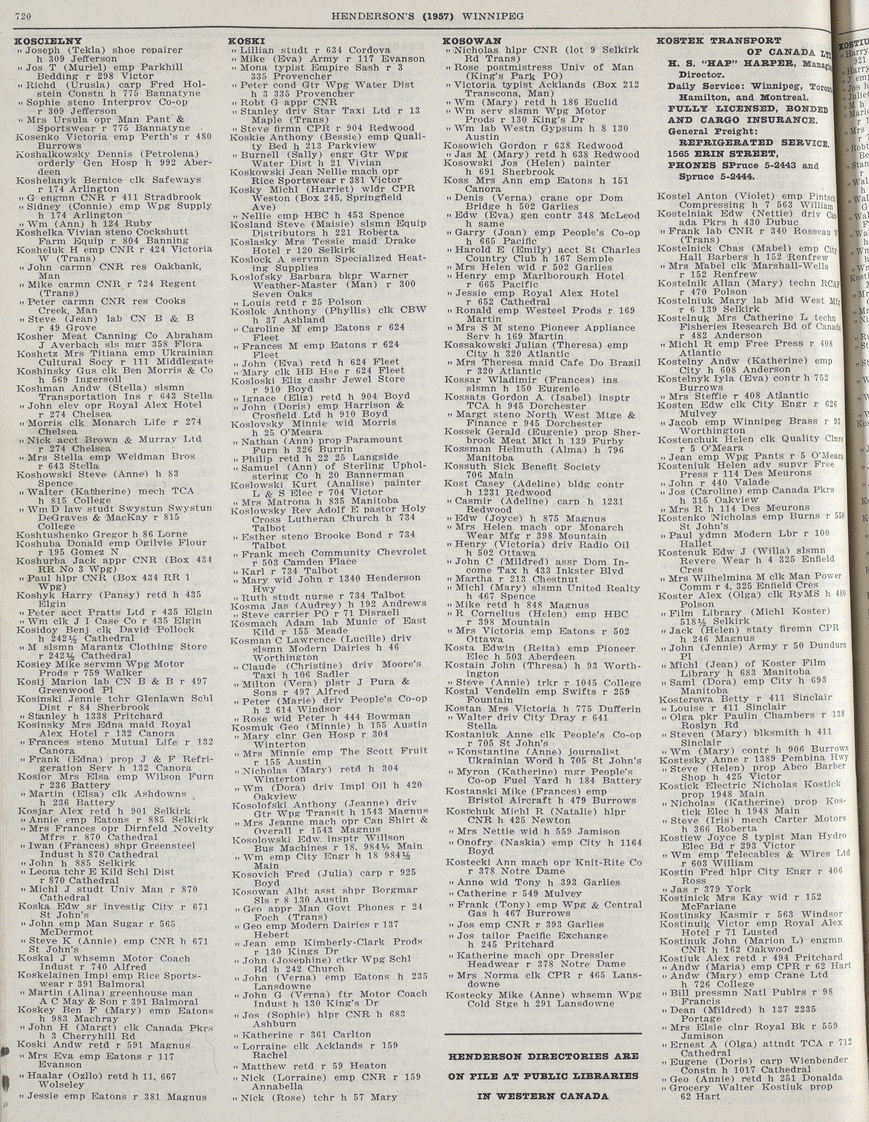 720
HENDERSON'S (1957) WINNIPEG
KOSCIELNY
" Joseph (Tekla) shoe repairer
h 309 Jefferson
" Jos T (Muriel) emp Parkhill
Bedding r 298 Victor
" Richd (Urusla) carp Fred Hol-
stein Constn h 775 Bannatyne
" Sophie steno Interprov Co-op
r 309 Jefferson
" Mrs Ursula opr Man Pant &
Sportswear r 775 Bannatyne
Kosenko Victoria emp Perth's r 480
Burrows
Koshalkowsky Dennis (Petrolena)
orderly Gen Hosp h 992 Aber-
deen
Koshelanyk Bernice clk Safeways
r 174 Arlington
" G engmn CNR r 411 Stradbrook
" Sidney (Connie) emp Wpg Supply
h 174 Arlington
" Wm (Ann) h 124 Ruby
Koshelka Vivian steno Cockshutt
Farm Equip r 804 Banning
Kosheluk H emp CNR r 424 Victoria
W (Trans)
" John carmn CNR res Oakbank,
Man
" Mike carmn CNR r 724 Regent
(Trans)
" Peter carmn CNR res Cooks
Creek, Man
" Steve (Jean) lab CN B & B
r 49 Grove
Kosher Meat Canning Co Abraham
J Averbach sls mgr 358 Flora
Koshetz Mrs Titiana emp Ukrainian
Cultural Socy r 111 Middlegate
Koshinsky Gus clk Ben Morris & Co
h 569 Ingersoll
Koshman Andw (Stella) slsmn
Transportation Ins r 643 Stella
" John elev opr Royal Alex Hotel
r 274 Chelsea
" Morris clk Monarch Life r 274
Chelsea
" Nick acct Brown & Murray Ltd
r 274 Chelsea
" Mrs Stella emp Weidman Bros
r 643 Stella
Koshowski Steve (Anne) h 83
Spence
" Walter (Katherine) mech TCA
h 815 College
" Wm D law studt Swystun Swystun
DeGraves & MacKay r 815
College
Koshtushenko Gregor h 86 Lorne
Koshuba Donald emp Ogilvie Flour
r 195 Gomez N
Koshurba Jack appr CNR (Box 434
RR No 3 Wpg)
" Paul hlpr CNR (Box 434 RR 1
Wpg)
Koshyk Harry (Pansy) retd h 435
Elgin
" Peter acct Pratts Ltd r 435 Elgin
" Wm clk J I Case Co r 435 Elgin
Kosidoy Benj clk David Pollock
h 242½ Cathedral
" M slsmn Marantz Clothing Store
r 242½ Cathedral
Kosiey Mike servmn Wpg Motor
Prods r 759 Walker
Kosij Marion lab CN B & B r 497
Greenwood Pl
Kosinski Jennie tchr Glenlawn Schl
Dist r 84 Sherbrook
" Stanley h 1338 Pritchard
Kosinsky Mrs Edna maid Royal
Alex Hotel r 132 Canora
" Frances steno Mutual Life r 132
Canora
" Frank (Edna) prop J & F Refri-
geration Serv h 132 Canora
Kosior Mrs Elsa emp Wilson Furn
r 236 Battery
" Martin (Elsa) clk Ashdowns
h 236 Battery
Kosjar Alex retd h 901 Selkirk
" Annie emp Eatons r 885 Selkirk
" Mrs Frances opr Dirnfeld Novelty
Mfrs r 870 Cathedral
" Iwan (Frances) shpr Greensteel
Indust h 870 Cathedral
" John h 885 Selkirk
" Leona tchr E Kild Schl Dist
r 870 Cathedral
" Michl J studt Univ Man r 870
Cathedral
Koska Edw sr investig City r 671
St John's
" John emp Man Sugar r 565
McDermot
" Steve K (Annie) emp CNR h 671
St John's
Koskal J whsemn Motor Coach
Indust r 740 Alfred
Koskelainen Impi emp Rice Sports-
wear r 391 Balmoral
" Martin (Alina) greenhouse man
A C May & Son r 391 Balmoral
Koskey Ben F (Mary) emp Eatons
h 983 Machray
" John H (Margt) clk Canada Pkrs
h 3 Cherryhill Rd
Koski Andw retd r 591 Magnus
" Mrs Eva emp Eatons r 117
Evanson
" Haalar (Ozllo) retd h 11, 667
Wolseley
" Jessie emp Eatons r 381 Magnus
KOSKI
" Lillian studt r 634 Cordova
" Mike (Eva) Army r 117 Evanson
" Mona typist Empire Sash r 3
335 Provencher
" Peter cond Gtr Wpg Water Dist
h 3 335 Provencher
" Robt G appr CNR
" Stanley driv Star Taxi Ltd r 13
Maple (Trans)
" Steve firmn CPR r 904 Redwood
Koskie Anthony (Bessie) emp Quali-
ty Bed h 213 Parkview
" Burnell (Sally) engr Gtr Wpg
Water Dist h 21 Vivian
Koskowski Jean Nellie mach opr
Rice Sportswear r 381 Victor
Kosky Michl (Harriet) wldr CPR
Weston (Box 245, Springfield
Ave)
" Nellie emp HBC h 453 Spence
Kosland Steve (Maisie) slsmn Equip
Distributors h 221 Roberta
Koslasky Mrs Tessie maid Drake
Hotel r 120 Selkirk
Koslock A servmn Specialized Heat-
ing Supplies
Koslofsky Barbara bkpr Warner
Weather-Master (Man) r 300
Seven Oaks
" Louis retd r 25 Polson
Koslok Anthony (Phyllis) clk CBW
h 37 Ashland
" Caroline M emp Eatons r 624
Fleet
" Frances M emp Eatons r 624
Fleet
" John (Eva) retd h 624 Fleet
" Mary clk HB Hse r 624 Fleet
Kosloski Eliz cashr Jewel Store
r 910 Boyd
" Ignace (Eliz) retd h 904 Boyd
" John (Doris) emp Harrison &
Crosfield Ltd h 910 Boyd
Koslovsky Minnie wid Morris
h 25 O'Meara
" Nathan (Ann) prop Paramount
Furn h 326 Burrin
" Philip retd h 22 25 Langside
" Samuel (Ann) of Sterling Uphol-
stering Co h 20 Bannerman
Koslowski Kurt (Analise) painter
L & S Elec r 704 Victor
" Mrs Matrona h 835 Manitoba
Koslowsky Rev Adolf E pastor Holy
Cross Lutheran Church h 734
Talbot
" Esther steno Brooke Bond r 734
Talbot
" Frank mech Community Chevrolet
r 503 Camden Place
" Karl r 734 Talbot
" Mary wid John r 1340 Henderson
Hwy
" Ruth studt nurse r 734 Talbot
Kosma Jas (Audrey) h 192 Andrews
" Steve carrier PO r 71 Disraeli
Kosmach Adam lab Munic of East
Kild r 155 Meade
Kosman C Lawrence (Lucille) driv
slsmn Modern Dairies h 46
Worthington
" Claude (Christine) driv Moore's
Taxi h 106 Sadler
" Milton (Vera) plstr J Pura &
Sons r 497 Alfred
" Peter (Marie) driv People's Co-op
h 2 614 Windsor
" Rose wid Peter h 444 Bowman
Kosmuk Geo (Minnie) h 155 Austin
" Mary clnr Gen Hosp r 304
Winterton
" Mrs Minnie emp The Scott Fruit
r 155 Austin
" Nicholas (Mary) retd h 304
Winterton
" Wm (Dora) driv Impl Oil h 420
Oakview
Kosolofski Anthony (Jeanne) driv
Gtr Wpg Transit h 1543 Magnus
" Mrs Jeanne mach opr Can Shirt &
Overall r 1543 Magnus
Kosolowski Edw insptr Willson
Bus Machines r 18, 984½ Main
" Wm emp City Engr h 18 984½
Main
Kosovich Fred (Julia) carp r 925
Boyd
Kosowan Albt asst shpr Borgmar
Sls r 8 130 Austin
" Geo appr Man Govt Phones r 24
Foch (Trans)
" Geo emp Modern Dairies r 137
Hebert
" Jean emp Kimberly-Clark Prods
r 130 Kings Dr
" John (Josephine) ctkr Wpg Schl
Bd h 242 Church
" John (Verna) emp Eatons h 235
Lansdowne
" John G (Verna) ftr Motor Coach
Indust h 130 King's Dr
" Jos (Sophie) hlpr CNR h 683
Ashburn
" Katherine r 361 Carlton
" Lorraine clk Acklands r 159
Rachel
" Matthew retd r 59 Heaton
" Nick (Lorraine) emp CNR r 159
Annabella
" Nick (Rose) tchr h 57 Mary
KOSOWAN
" Nicholas hlpr CNR (lot 9 Selkirk
Rd Trans)
" Rose postmistress Univ of Man
(King's Park PO)
" Victoria typist Acklands (Box 212
Transcona, Man)
" Wm (Mary) retd h 186 Euclid
" Wm serv slsmn Wpg Motor
Prods r 130 King's Dr
" Wm lab Westn Gypsum h 8 130
Austin
Kosowich Gordon r 638 Redwood
" Jas M (Mary) retd h 638 Redwood
Kosowski Jos (Helen) painter
h 691 Sherbrook
Koss Mrs Ann emp Eatons h 151
Canora
" Denis (Verna) crane opr Dom
Bridge h 502 Garlies
" Edw (Eva) gen contr 348 McLeod
h same
" Garry (Joan) emp People's Co-op
h 665 Pacific
" Harold E (Emily) acct St Charles
Country Club h 167 Semple
" Mrs Helen wid r 502 Garlies
" Henry emp Marlborough Hotel
r 665 Pacific
" Jessie emp Royal Alex Hotel
r 652 Cathedral
" Ronald emp Westeel Prods r 169
Martin
" Mrs S M steno Pioneer Appliance
Serv h 169 Martin
Kossakowski Julian (Theresa) emp
City h 320 Atlantic
" Mrs Theresa maid Cafe Do Brazil
r 320 Atlantic
Kossar Wladimir (Frances) ins
slsmn h 150 Eugenie
Kossats Gordon A (Isabel) insptr
TCA h 945 Dorchester
" Margt steno North West Mtge &
Finance r 945 Dorchester
Kossek Gerald (Eugenie) prop Sher-
brook Meat Mkt h 139 Furby
Kossman Helmuth (Alma) h 796
Manitoba
Kossuth Sick Benefit Society
706 Main
Kost Casey (Adeline) bldg contr
h 1231 Redwood
" Casmir (Adeline) carp h 1231
Redwood
" Edw (Joyce) h 875 Magnus
" Mrs Helen mach opr Monarch
Wear Mfg r 398 Mountain
" Henry (Victoria) driv Radio Oil
h 502 Ottawa
" John C (Mildred) assr Dom In-
come Tax h 433 Inkster Blvd
" Martha r 213 Chestnut
" Michl (Mary) slsmn United Realty
h 467 Spence
" Mike retd h 848 Magnus
" R Cornelius (Helen) emp HBC
r 398 Mountain
" Mrs Victoria emp Eatons r 502
Ottawa
Kosta Edwin (Reita) emp Pioneer
Elec h 503 Aberdeen
Kostain John (Thresa) h 93 Worth-
ington
" Steve (Annie) trkr r 1045 College
Kostal Vendelin emp Swifts r 259
Fountain
Kostan Mrs Victoria h 775 Dufferin
" Walter driv City Dray r 641
Stella
Kostaniuk Anne clk People's Co-op
r 705 St John's
" Konstantine (Anne) journalist
Ukrainian Word h 705 St John's
" Myron (Katherine) mgr People's
Co-op Fuel Yard h 184 Battery
Kostanski Mike (Frances) emp
Bristol Aircraft h 479 Burrows
Kostchuk Michl R (Natalie) hlpr
CNR h 425 Newton
" Mrs Nettie wid h 559 Jamison
" Onofry (Naskia) emp City h 1164
Boyd
Kostecki Ann mach opr Knit-Rite Co
r 378 Notre Dame
" Anne wid Tony h 393 Garlies
" Catherine r 549 Mulvey
" Frank (Tony) emp Wpg & Central
Gas h 467 Burrows
" Jos emp CNR r 393 Garlies
" Jos tailor Pacific Exchange
h 245 Pritchard
" Katherine mach opr Dressler
Headwear r 378 Notre Dame
" Mrs Norma clk CPR r 465 Lans-
downe
Kostecky Mike (Anne) whsemn Wpg
Cold Stge h 291 Lansdowne
HENDERSON DIRECTORIES ARE
ON FILE AT PUBLIC LIBRARIES
IN WESTERN CANADA
KOSTEK TRANSPORT
OF CANADA
H. S. "HAP" HARPER,
Director.
Daily Service: Winnipeg,
Hamilton, and Montreal.
FULLY LICENSED, BONDED
AND CARGO INSURANCE.
General Freight:
REFRIGERATED SERVICE.
1565 ERIN STREET,
PHONES SPruce 5-2443 and
Spruce 5-2444.
Kostel Anton (Violet) emp
Compressing h 7 563 William
Kostelniak Edw (Nettie) driv
ada Pkrs h 430 Dubuc
" Frank lab CNR r 340 Rosseau
(Trans)
Kostelnick Chas (Mabel) emp City
Hall Barbers h 152 Renfrew
" Mrs Mabel clk Marshall-Wells
r 152 Renfrew
Kostelnik Allan (Mary) techn RCAF
r 470 Polson
Kostelniuk Mary lab Mid West Mfg
r 6 139 Selkirk
Kostelnuk Mrs Catherine L techn
Fisheries Research Bd of Canada
r 482 Anderson
" Michl R emp Free Press r 408
Atlantic
Kostelny Andw (Katherine) emp
City h 608 Anderson
Kostelnyk Iyla (Eva) contr h 752
Burrows
" Mrs Steffie r 408 Atlantic
Kosten Edw clk City Engr r 626
Mulvey
" Jacob emp Winnipeg Brass r 91
Worthington
Kostenchuk Helen clk Quality Clnrs
r 5 O'Meara
" Jean emp Wpg Pants r 5 O'Meara
Kosteniuk Helen adv supvr Free
Press r 114 Des Meurons
" John r 440 Valade
" Jos (Caroline) emp Canada Pkrs
h 315 Oakview
" Mrs R h 114 Des Meurons
Kostenko Nicholas emp Burns r
St John's
" Paul ydmn Modern Lbr r 100
Hallet
Kostenuk Edw J (Willa) slsmn
Revere Wear h 4 325 Enfield
Cres
" Mrs Wilhelmina M clk Man Power
Comm r 4, 325 Enfield Cres
Koster Alex (Olga) clk RyMS h
Polson
" Film Library (Michl Koster)
518½ Selkirk
" Jack (Helen) staty firemn CPR
h 246 Magnus
" John (Jennie) Army r 50 Dundurn
Pl
" Michl (Jean) of Koster Film
Library h 683 Manitoba
" Saml (Dora) emp City h 693
Manitoba
Kosterewa Betty r 411 Sinclair
" Louise r 411 Sinclair
" Olga pkr Paulin Chambers r 138
Roslyn Rd
" Steven (Mary) blksmith h 411
Sinclair
" Wm (Mary) contr h 906 Burrows
Kostesky Anne r 1389 Pembina Hwy
" Steve (Helen) prop Abco Barber
Shop h 425 Victor
Kostick Electric Nicholas Kostick
prop 1948 Main
" Nicholas (Katherine) prop Kos-
tick Elec h 1948 Main
" Steve (Iris) mech Carter Motors
h 366 Roberta
Kostiew Joyce S typist Man Hydro
Elec Bd r 293 Victor
" Wm emp Telecables & Wires Ltd
r 603 William
Kostin Fred hlpr City Engr r 406
Ross
" Jas r 379 York
Kostinick Mrs Kay wid r 152
McFarlane
Kostinsky Kasmir r 563 Windsor
Kostinuik Victor emp Royal Alex
Hotel r 71 Lusted
Kostinuk John (Marion L) engmn
CNR h 162 Oakwood
Kostiuk Alex retd r 494 Pritchard
" Andw (Maria) emp CPR r 62 Hart
" Andw (Mary) emp Crane Ltd
h 726 College
" Bill pressmn Natl Publrs r 98
Francis
" Dean (Mildred) h 137 2235
Portage
" Mrs Elsie clnr Royal Bk r 559
Jamison
" Ernest A (Olga) attndt TCA r 712
Cathedral
" Eugene (Doris) carp Wienbender
Constn h 1017 Cathedral
" Geo (Annie) retd h 251 Donalda
" Grocery Walter Kostiuk prop
62 Hart